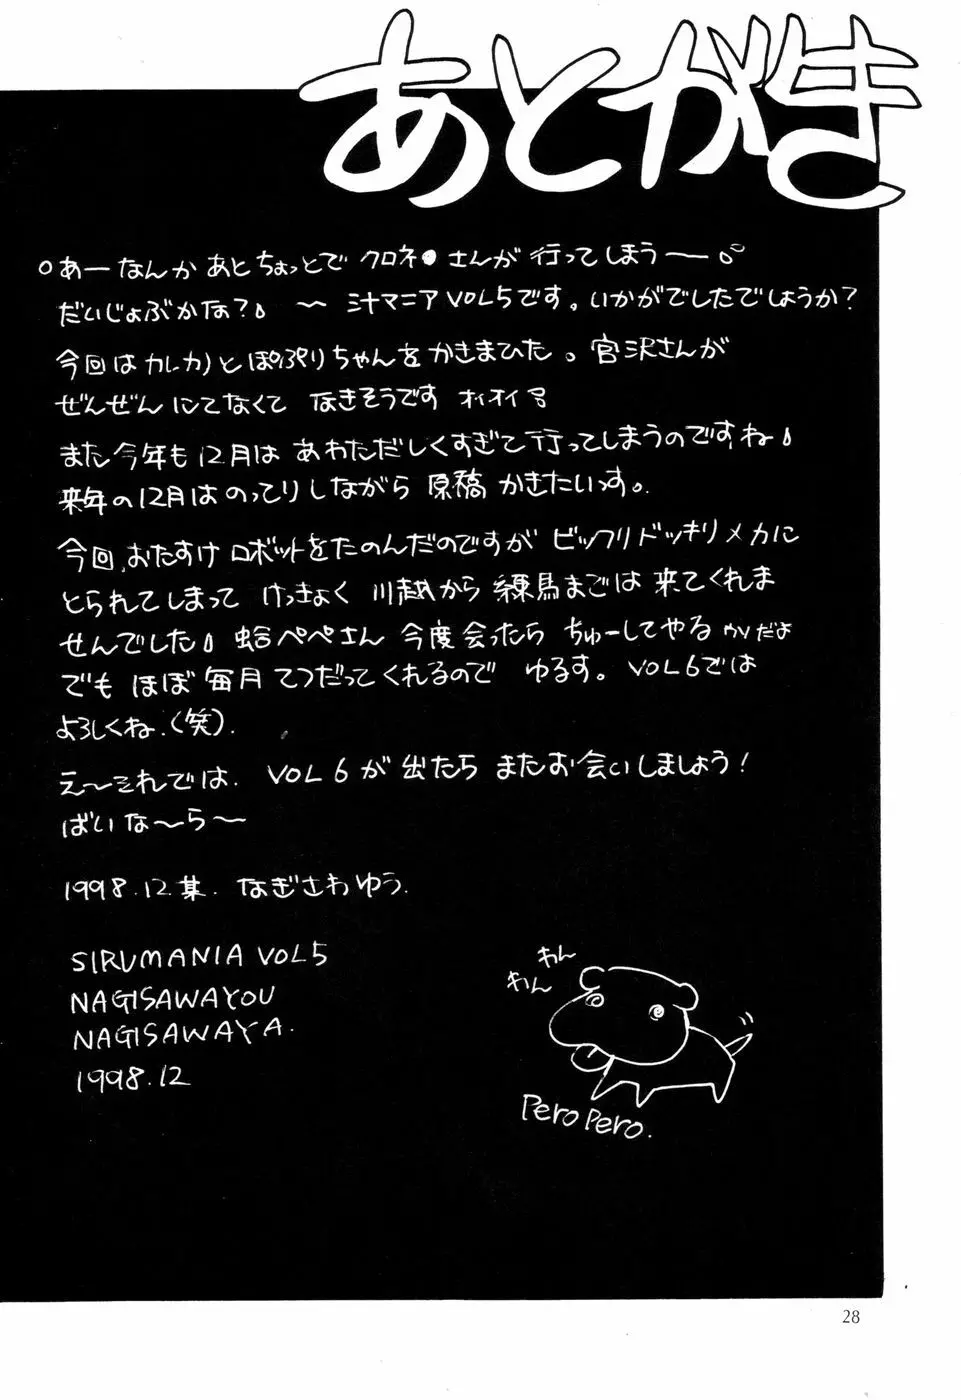 あとがき
○あーなんか あとちょっとで クロネ●さんが行ってしまうー。
だいじょぶかな? 〜 汁マニアVOL5です。いかがでしたでしょうか?
今回はカレカノとぽぷりちゃんをかきまひた。宮沢さんが
ぜんぜんにてなくて なきそうです オイオイ
また今年も12月は あわただしくすぎて行ってしまうのですね
来年の12月はのってりしながら 原稿 かきたいっす。
今回、おたすけ ロボットをたのんだのですが ビックリドッキリメカに
とられてしまって けっきょく 川越から 練馬までは 来てくれま
せんでした 蛤ペペさん 今度会ったら ちゅーしてやる だよ
でも ほぼ毎月 てつだってくれるので ゆるす。VOL6では
よろしくね.(笑).
え〜それでは. VOL 6が 出たら またお会いしましょう!
ばいな〜ら〜
1998.12.某. なぎさわゆう.
SIRUMANIA VOL5
NAGISAWAYOU
NAGISAWAYA.
1998.12
わん
わん
Pero Pero.
28